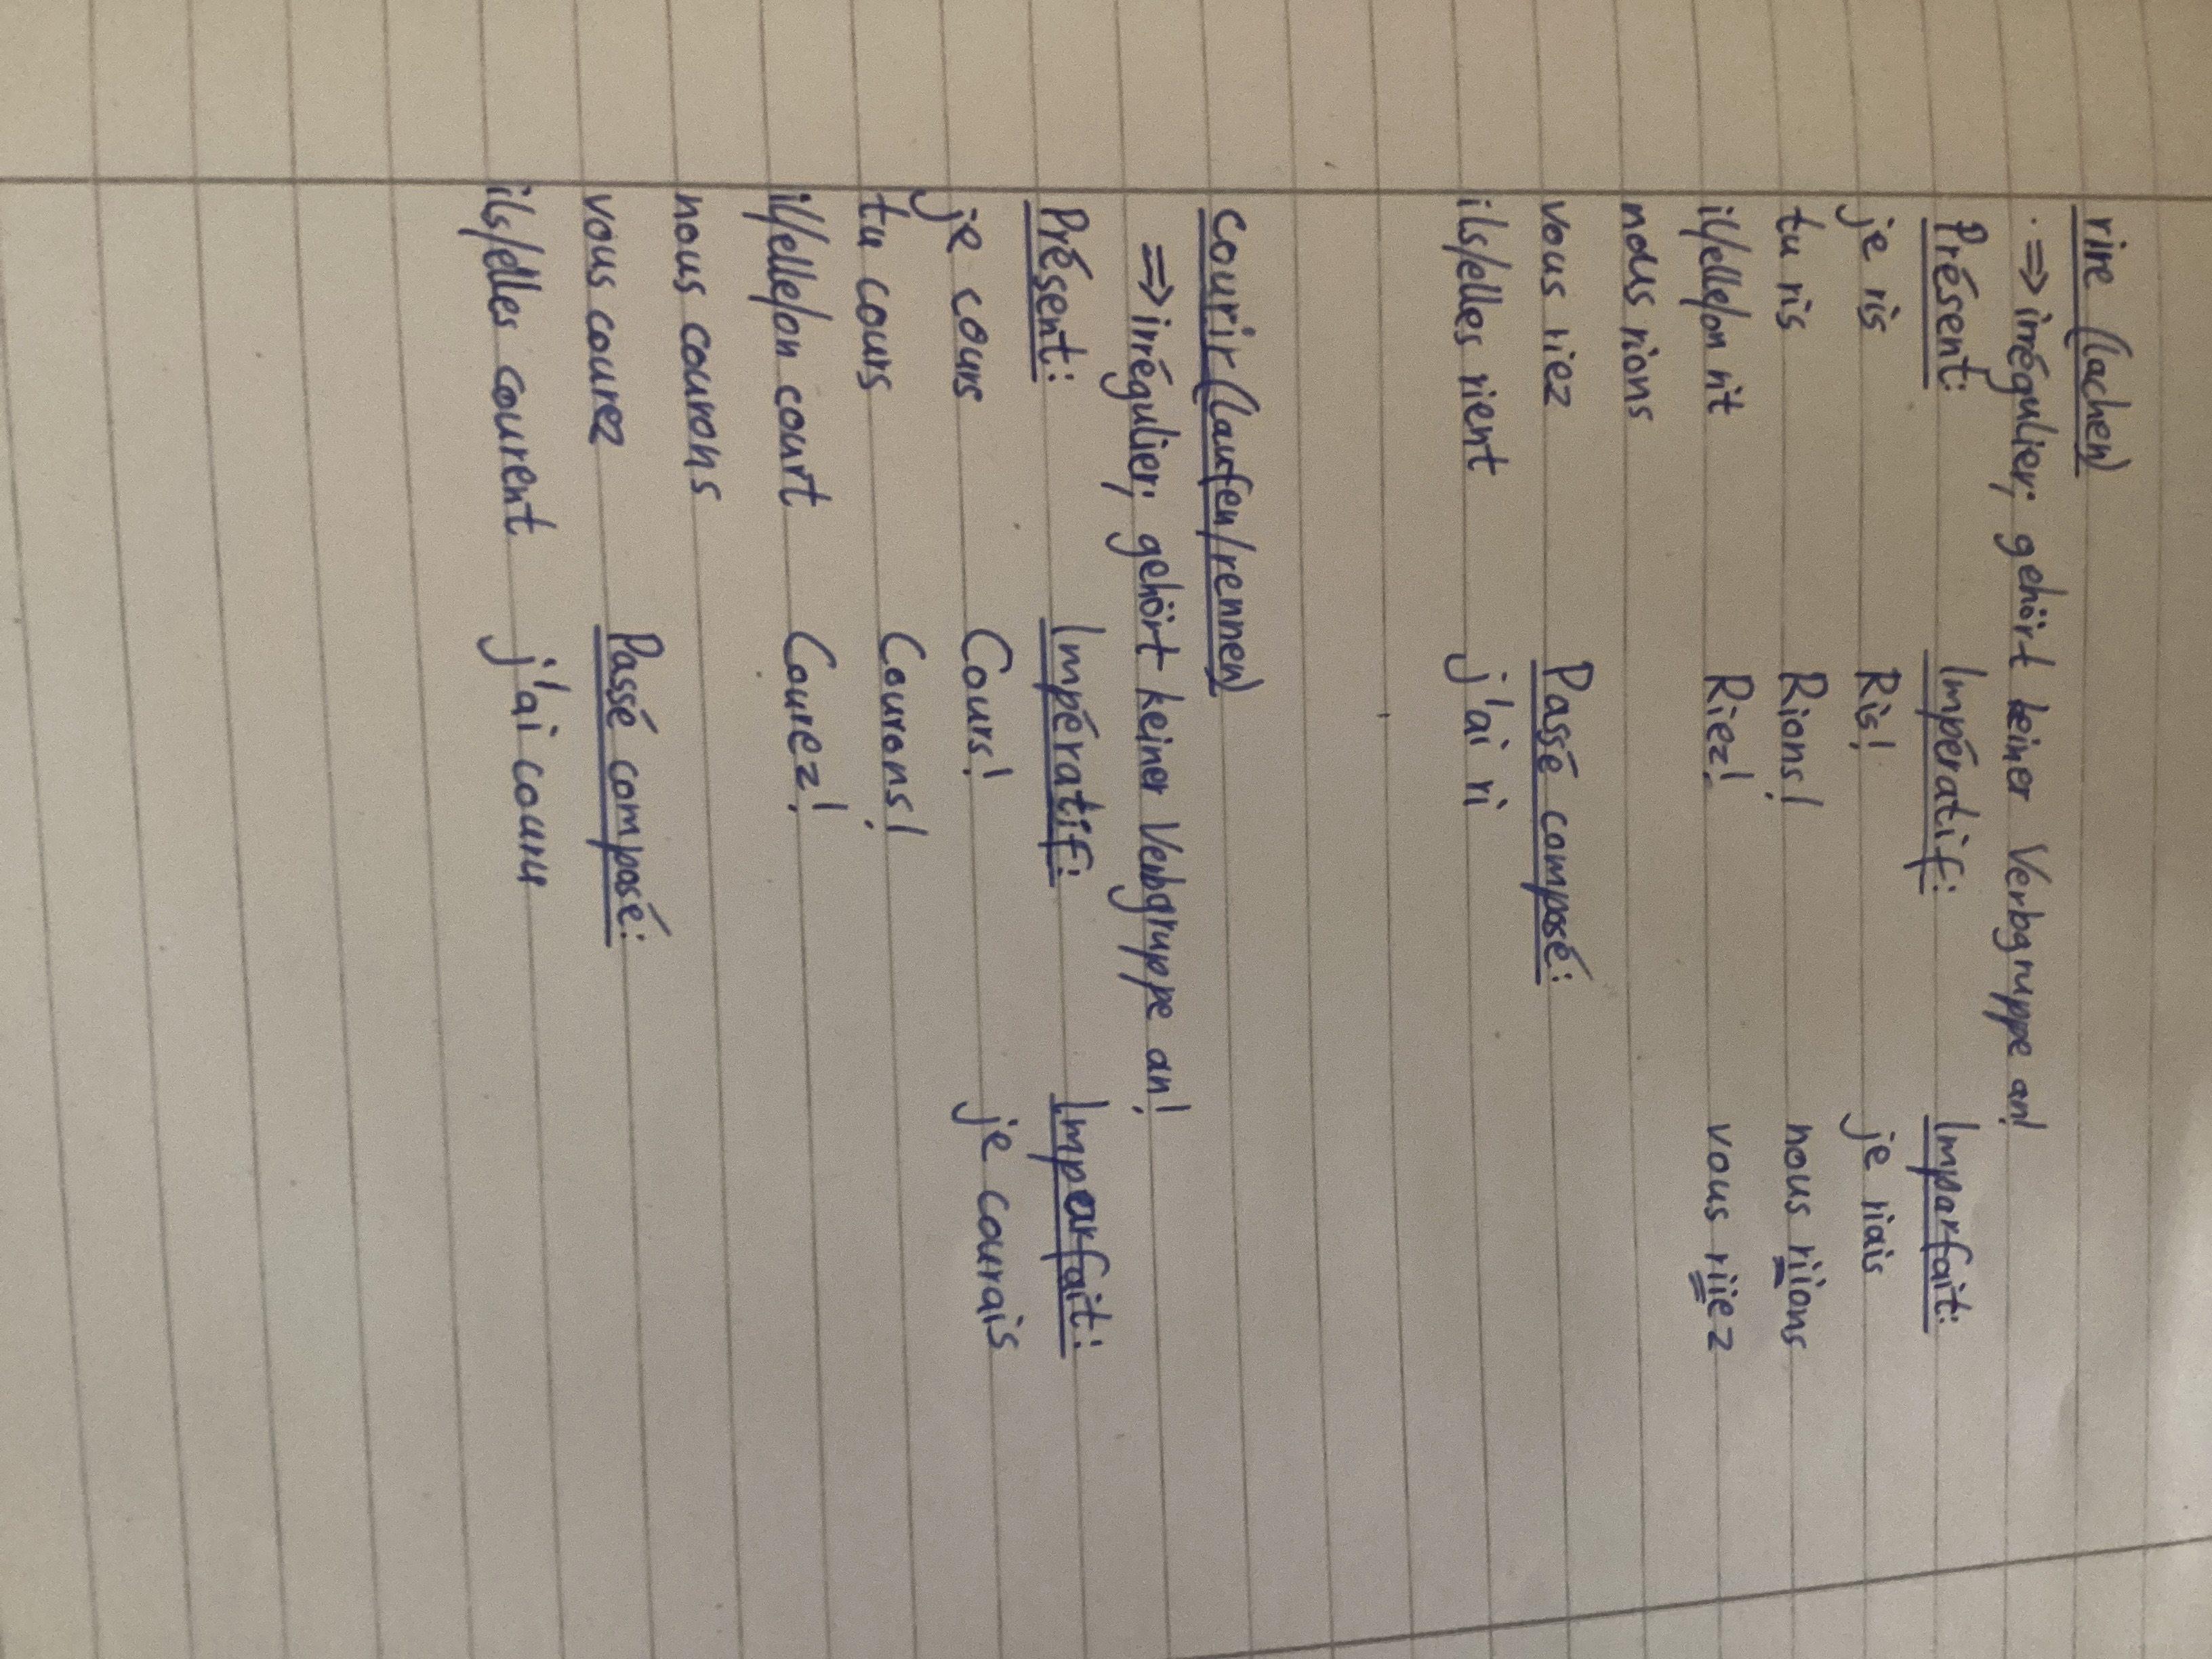 rire (lachen)
⇒ irrégulier; gehört keiner Verbgruppe an!
Présent: Impératif: Imparfait:
je ris Ris! je riais
tu ris Rions! nous riions
il/elle/on rit Riez! vous riiez
nous rions
vous riez Passé composé:
ils/elles rient j'ai ri
courir (laufen/rennen)
⇒ irrégulier; gehört keiner Verbgruppe an!
Présent: Impératif: Imparfait:
je cours Cours! je courais
tu cours Courons!
il/elle/on court Courez!
nous courons
vous courez Passé composé:
ils/elles courent j'ai couru